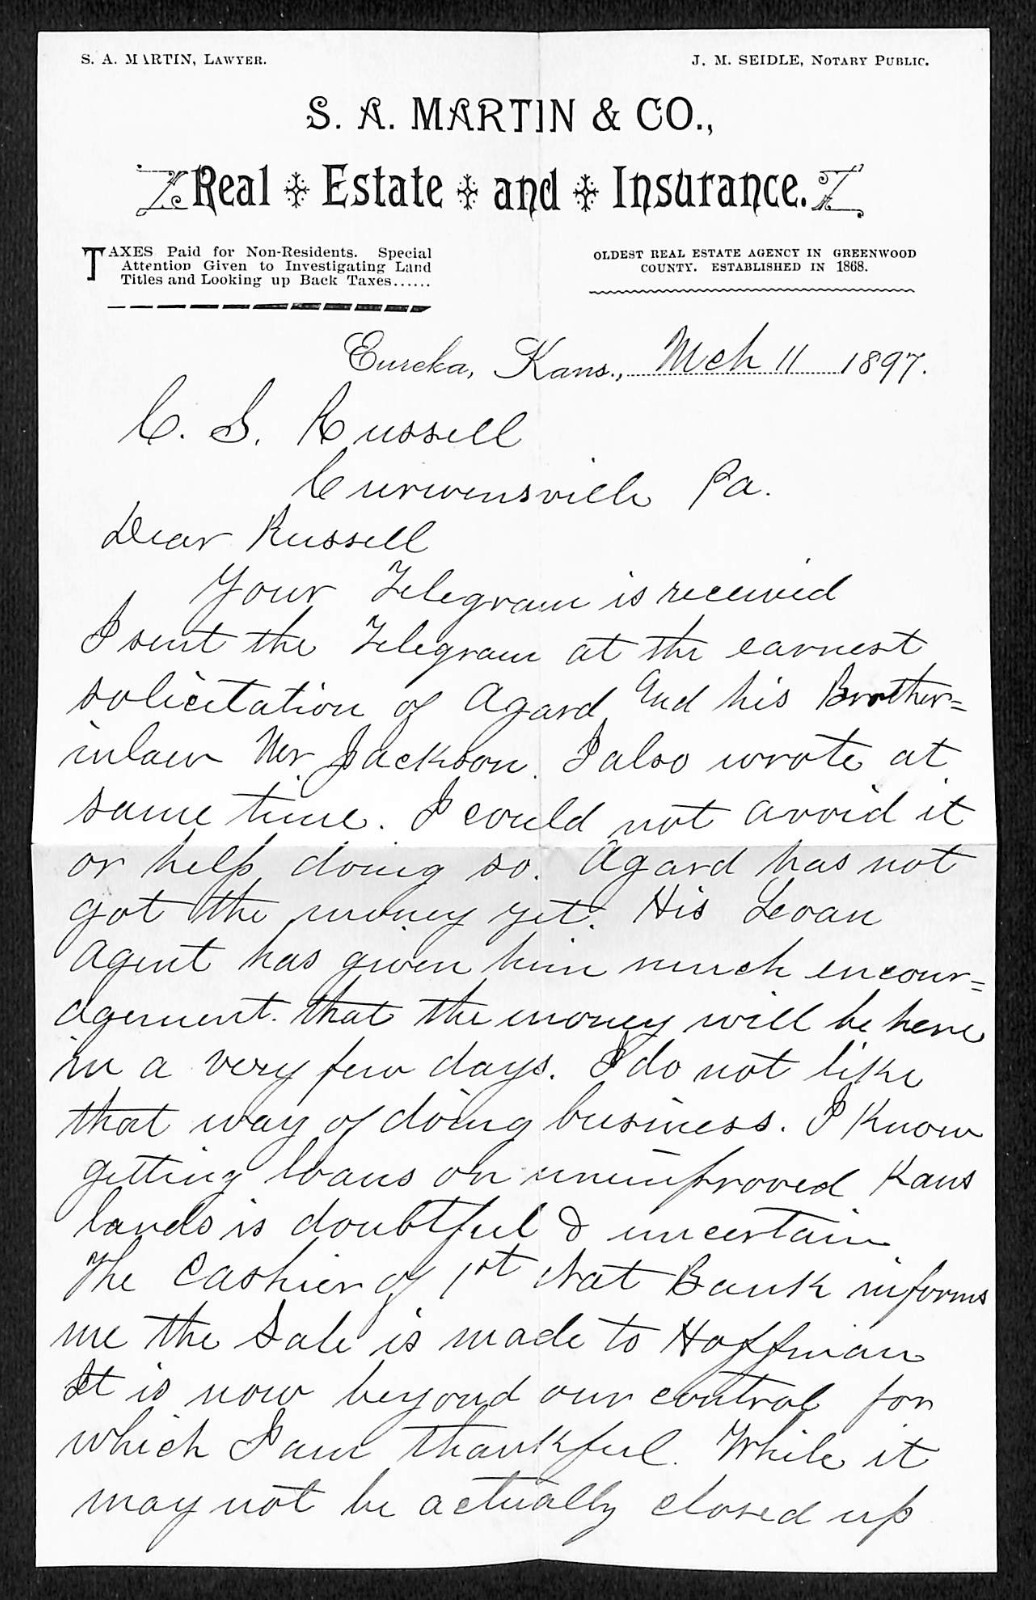 S. A. MARTIN, LAWYER.
J. M. SEIDLE, NOTARY PUBLIC.
S. A. MARTIN & CO.,
Real Estate and Insurance.
TAXES Paid for Non-Residents. Special
Attention Given to Investigating Land
Titles and Looking up Back Taxes......
OLDEST REAL ESTATE AGENCY IN GREENWOOD
COUNTY. ESTABLISHED IN 1868.
Eureka, Kans., Mch 11 1897.
C. S. Russell
Curwensville Pa.
Dear Russell
Your Telegram is received
I sent the Telegram at the earnest
solicitation of Agard and his Brother=
inlaw Mr Jackson. I also wrote at
same time. I could not avoid it
or help doing so. Agard has not
got the money yet. His Loan
Agent has given him much encour=
agement that the money will be here
in a very few days. I do not like
that way of doing business. I know
getting loans on unimproved Kans
lands is doubtful & uncertain
The Cashier of 1st Nat Bank informs
me the Sale is made to Hoffman
It is now beyond our control for
which I am thankful. While it
may not be actually closed up